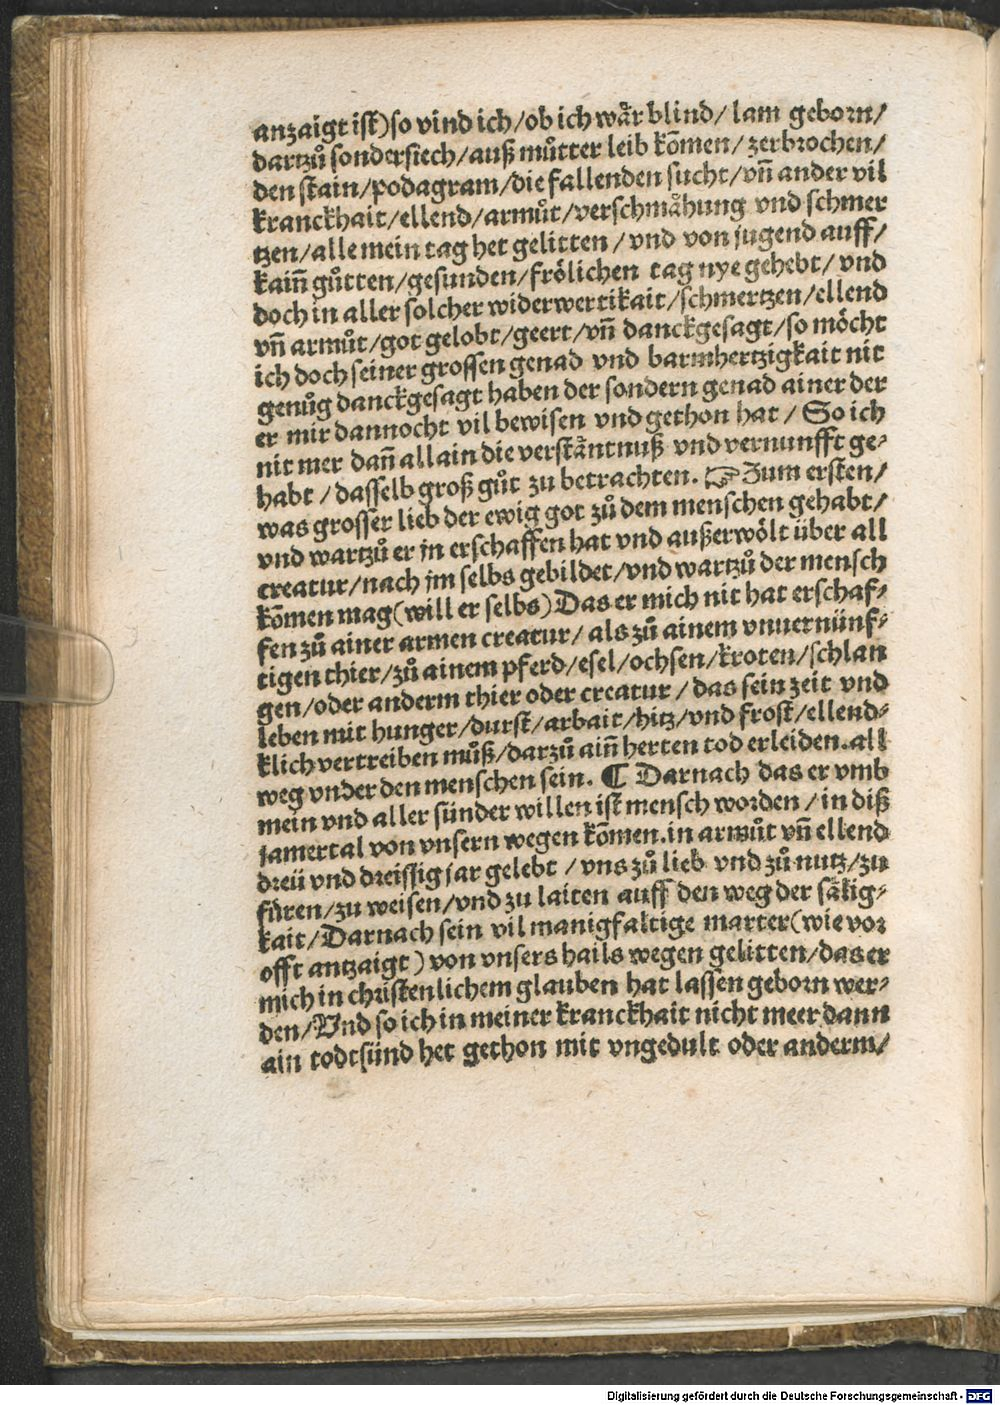 anzaigt ist) so vind ich/ob ich wår blind/ lam geborn/
dartzů sondersiech/auß můtter leib kōmen/ zerbrochen/
den stain/podagram/die fallenden sucht/vn̄ ander vil
kranckhait/ellend/armůt/verschmåhung vnd schmer
tzen/alle mein tag het gelitten/vnd von jugend auff/
kain̄ gůtten/gesunden/frőlichen tag nye gehebt/vnd
doch in aller solcher widerwertikait/schmertzen/ellend
vn̄ armůt/got gelobt/geert/vn̄ danckgesagt/so mőcht
ich doch seiner grossen genad vnd barmhertzigkait nit
genůg danckgesagt haben der sondern genad ainer der
er mir dannocht vil bewisen vnd gethon hat/ So ich
nit mer dan̄ allain die verståntnuß vnd vernunfft ge⸗
habt/dasselb groß gůt zu betrachten. ☞ Zum ersten/
was grosser lieb der ewig got zů dem menschen gehabt/
vnd wartzů er jn erschaffen hat vnd außerwőlt über all
creatur/nach jm selbs gebildet/vnd wartzů der mensch
kōmen mag(will er selbs)Das er mich nit hat erschaf⸗
fen zů ainer armen creatur/als zů ainem vnuernünf⸗
tigen thier/zů ainem pferd/esel/ochsen/kroten/schlan
gen/oder anderm thier oder creatur/das sein zeit vnd
leben mit hunger/durst/arbait/hitz/vnd frost/ellend⸗
klich vertreiben můß/darzů ain̄ herten tod erleiden.all
weg vnder den menschen sein. ¶ Darnach das er vmb
mein vnd aller sünder willen ist mensch worden/in diß
jamertal von vnsern wegen kōmen.in armůt vn̄ ellend
dreü vnd dreissig jar gelebt/vns zů lieb vnd zů nutz/zu
füren/zu weisen/vnd zu laiten auff den weg der sålig⸗
kait/Darnach sein vil manigfaltige marter(wie vor
offt antzaigt) von vnsers hails wegen gelitten/das er
mich in christenlichem glauben hat lassen geborn wer⸗
den/Vnd so ich in meiner kranckhait nicht meer dann
ain todtsünd het gethon mit vngedult oder anderm/
Digitalisierung gefördert durch die Deutsche Forschungsgemeinschaft - DFG